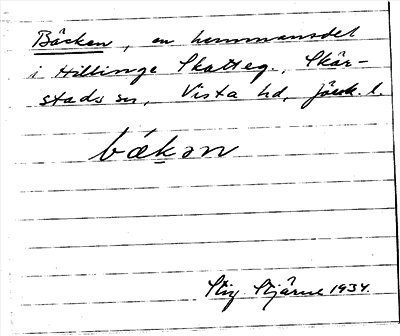 Bäcken, en hemmansdel
i Hillinge Skatteg., Skär-
stads sn, Vista hd, Jönk. l.
bækən
Stig Stjärne 1934.